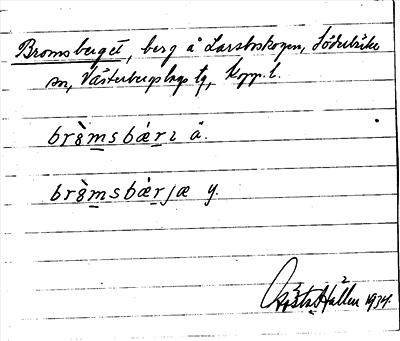 Bromsberget, berg å Larsboskogen, Söderbärke
sn, Västerbergslags tg, Kopp. l.
brò̤msbǽrı ä.
brò̤msbǽrjæ y.
Gösta Hallen 1934.